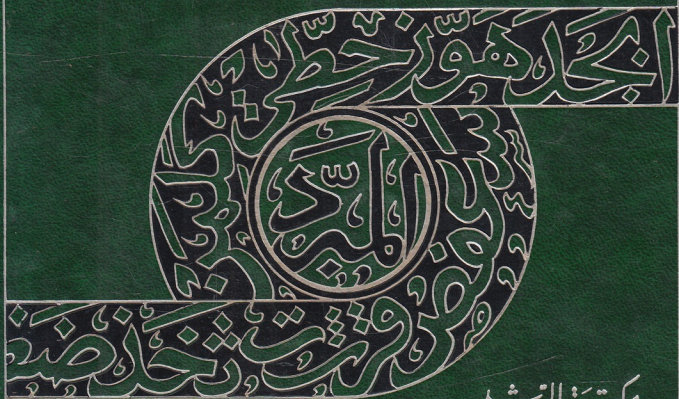 ابجد هوّز حطّي كلمن سعفص قرشت ثخذ ضظغ
المبرّد